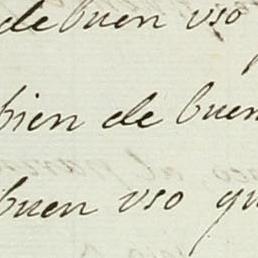 de buen vso
bien de buen
buen vso